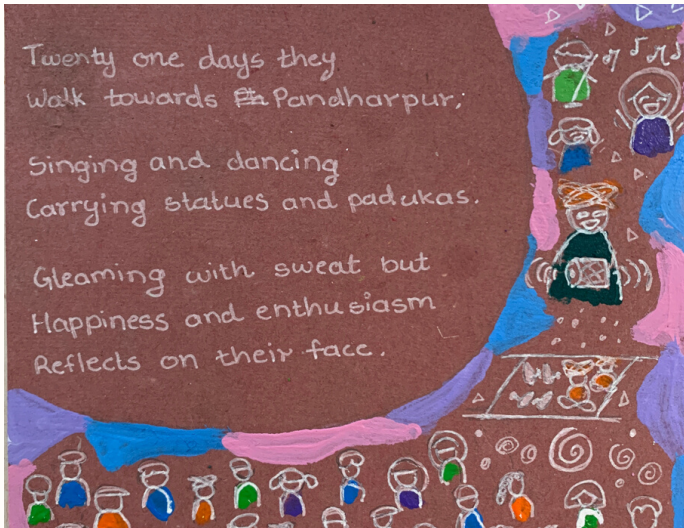 Twenty one days they
Walk towards Pandharpur,
Singing and dancing
Carrying statues and padukas.
Gleaming with sweat but
Happiness and enthusiasm
Reflects on their face.